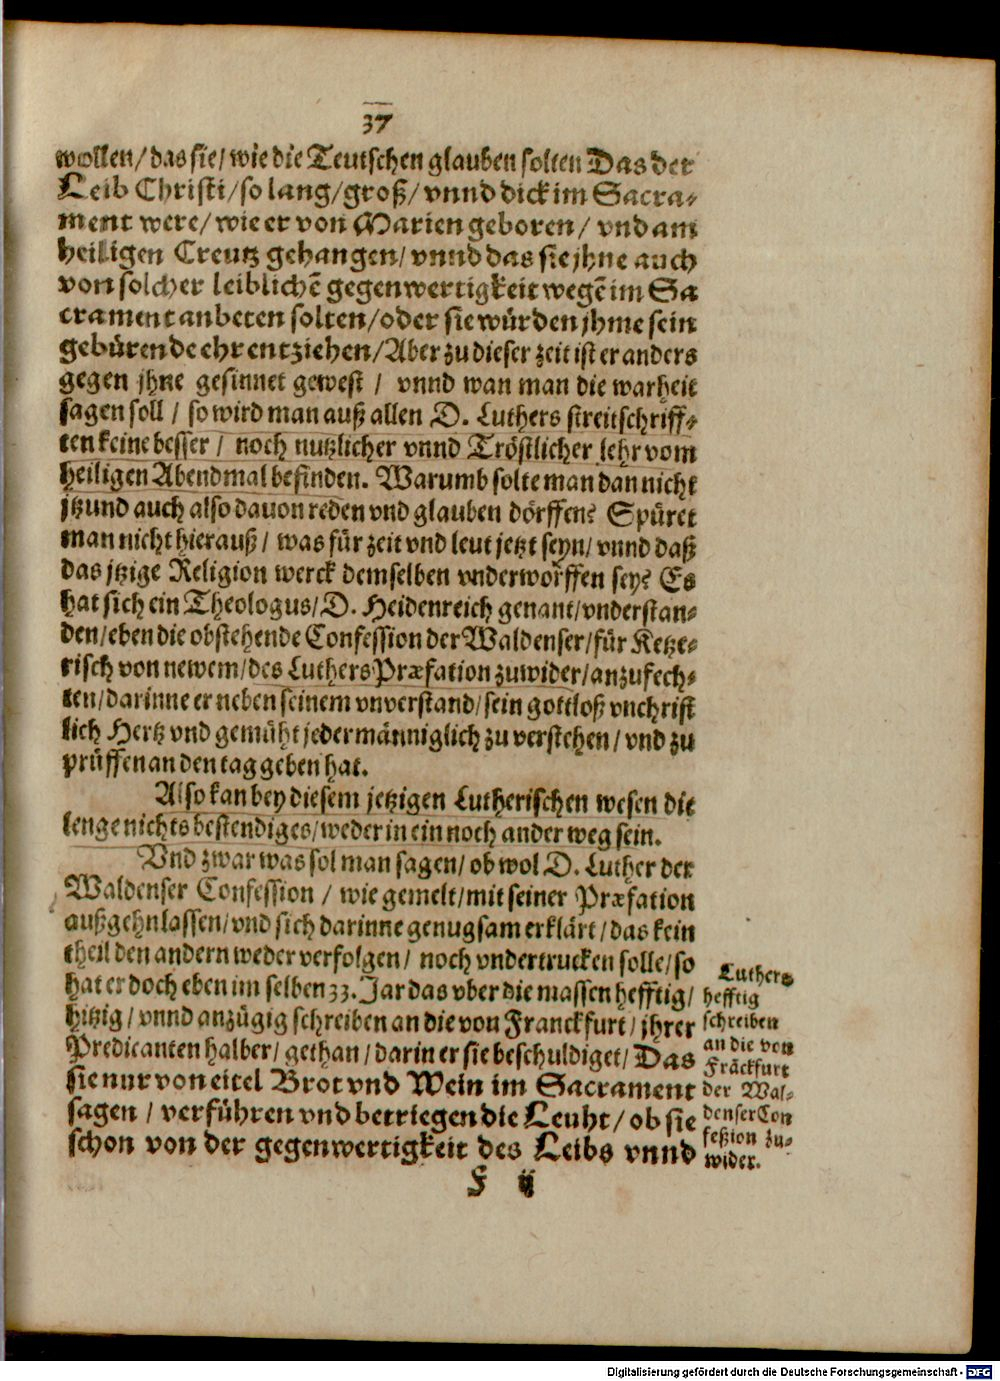 37
wollen/das sie/wie die Teutschen glauben solten Das der
Leib Christi/so lang/groß/vnnd dick im Sacra-
ment were/wie er von Marien geboren/vnd am
heiligen Creutz gehangen/vnnd das sie jhne auch
von solcher leiblichẽ gegenwertigkeit wegẽ im Sa
crament anbeten solten/oder sie würden jhme sein
gebürende ehr entziehen/Aber zu dieser zeit ist er anders
gegen jhne gesinnet gewest / vnnd wan man die warheit
sagen soll / so wird man auß allen D. Luthers streitschriff-
ten keine besser / noch nutzlicher vnnd Tröstlicher lehr vom
heiligen Abendmal befinden. Warumb solte man dan nicht
jtzund auch also dauon reden vnd glauben dörffen? Spüret
man nicht hierauß / was für zeit vnd leut jetzt seyn/vnnd daß
das jtzige Religion werck demselben vnderworffen sey? Es
hat sich ein Theologus/D. Heidenreich genant/vnderstan-
den/eben die obstehende Confession der Waldenser/für Ketze-
risch von newem/des Luthers Præfation zuwider/anzufech-
ten/darinne er neben seinem vnverstand/sein gottloß vnchrist
lich Hertz vnd gemüht jedermänniglich zu verstehen/vnd zu
prüffen an den tag geben hat.
Also kan bey diesem jetzigen Lutherischen wesen die
lenge nichts bestendiges/weder in ein noch ander weg sein.
Vnd zwar was sol man sagen/ob wol D. Luther der
Waldenser Confession / wie gemelt/mit seiner Præfation
außgehn lassen/vnd sich darinne genugsam erklärt/das kein
theil den andern weder verfolgen/ noch vndertrucken solle/so
hat er doch eben im selben 33. Jar das vber die massen hefftig/
hitzig/vnnd anzügig schreiben an die von Franckfurt/jhrer
Predicanten halber/gethan/darin er sie beschuldiget/Das
sie nur von eitel Brot vnd Wein im Sacrament
sagen / verführen vnd betriegen die Leuht/ob sie
schon von der gegenwertigkeit des Leibs vnnd
Luthers
hefftig
schreiben
an die von
Fräckfurt
der Wal-
denser Con
feßion zu-
wider.
F ij
Digitalisierung gefördert durch die Deutsche Forschungsgemeinschaft - DFG